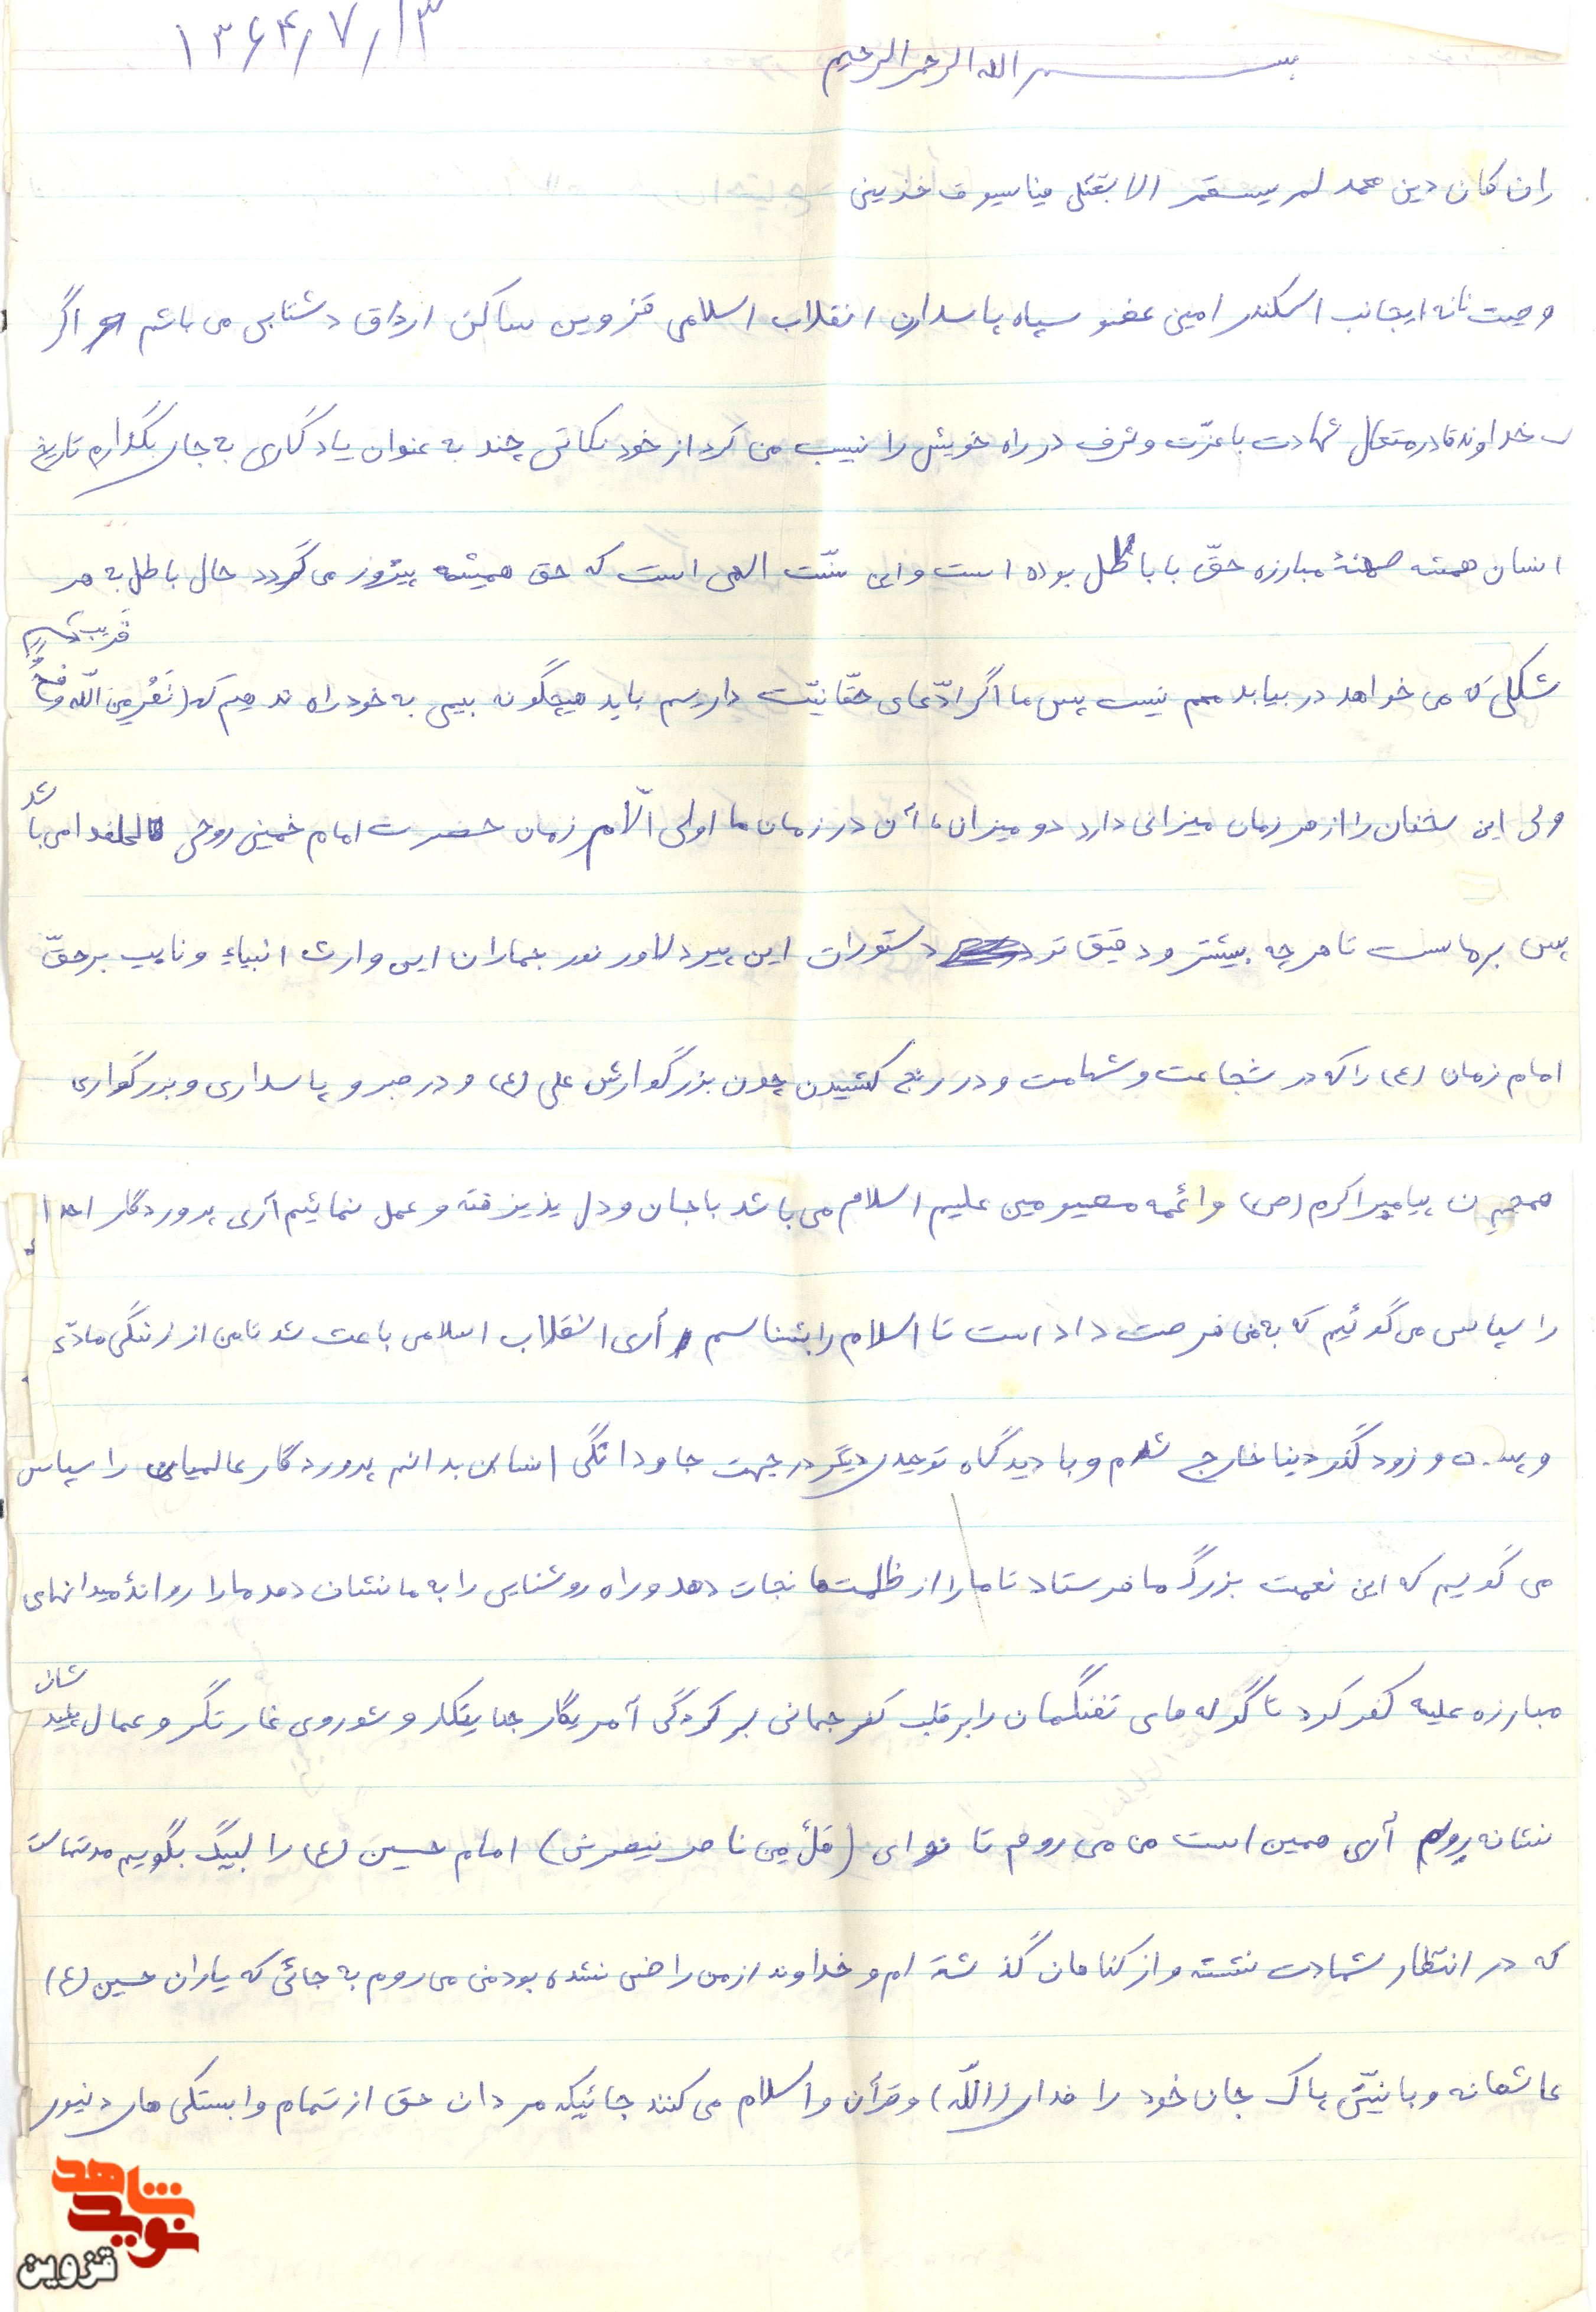 ۱۳۶۴/۷/۱۳
بسم الله الرحمن الرحیم
ان کان دین محمد لم یستقم الا بقتلی فیا سیوف خذینی
وصیت نامه اینجانب اسکندر امینی عضو سپاه پاسداران انقلاب اسلامی قزوین ساکن ارداق دشتابی می باشم اگر
خداوند قادر متعال شهادت با عزّت و شرف در راه خویش را نسیب من کرد از خود نکاتی چند به عنوان یادگاری به جای بگذارم تاریخ
انسان همشه صحنهٔ مبارزه حقّ با باطل بوده است و این سنّت الهی است که حق همیشه پیروز می گردد حال باطل به هر
شکلی که می خواهد در بیاید مهم نیست پس ما اگر ادّعای حقّانیّت داریم باید هیچگونه بیمی به خود راه ندهیم که (نَصْرٌ مِنَ اللّه وَ فَتْحٌ قَریب)
ولی این سخنان را از هر زمان میزانی دارد و میزان ما آن در زمان ما اولی الّامر زمان حضرت امام خمینی روحی له الفدا می باشد
پس بر ماست تا هر چه بیشتر و دقیق تر دستورات این پیر دلاور نور جماران این وارث انبیاء و نایب بر حقّ
امام زمان (ع) را که در شجاعت و شهامت و در رنج کشیدن چون بزرگوارش علی (ع) و در صبر و پاسداری و بزرگواری
همچون پیامبر اکرم (ص) و ائمه معصومین علیهم اسلام می باشد با جان و دل پذیرفته و عمل نمائیم آری پروردگار احد ا
را سپاس می گوئیم که به من فرصت داد است تا اسلام را بشناسم آری انقلاب اسلامی باعث شد تا من از زندگی مادّی
و پست و زود گذر دنیا خارج شدم و با دیدگاه توحیدی دیگر در جهت جاودانگی انسان بدانم پروردگار عالمیان را سپاس
می گویم که این نعمت بزرگ ما فرستاد تا ما را از ظلمتها نجات دهد و راه روشنایی را به ما نشان دهد ما را روانهٔ میدانهای
مبارزه علیه کفر کرد تا گوله های تفنگمان را بر قلب کفر جهانی بر کردگی آمریکار جنایتکار و شوروی غارتگر و عمال پلیدشان
نشانه رویم آری همین است من می روم تا نوای (هَلْ مِن ناصر ینصرنی) امام حسین (ع) را لبیک بگویم مدتهاست
که در انتظار شهادت نشسته و از گناهان گذشته ام و خداوند از من راضی نشده بود من می روم به جائی که یاران حسین (ع)
عاشقانه و با نیّتی پاک جان خود را فدای (اللّه) و قرآن و اسلام می کنند جائیکه مردان حق از تمام وابستگی های دنیوی
نوید شاهد
قزوین